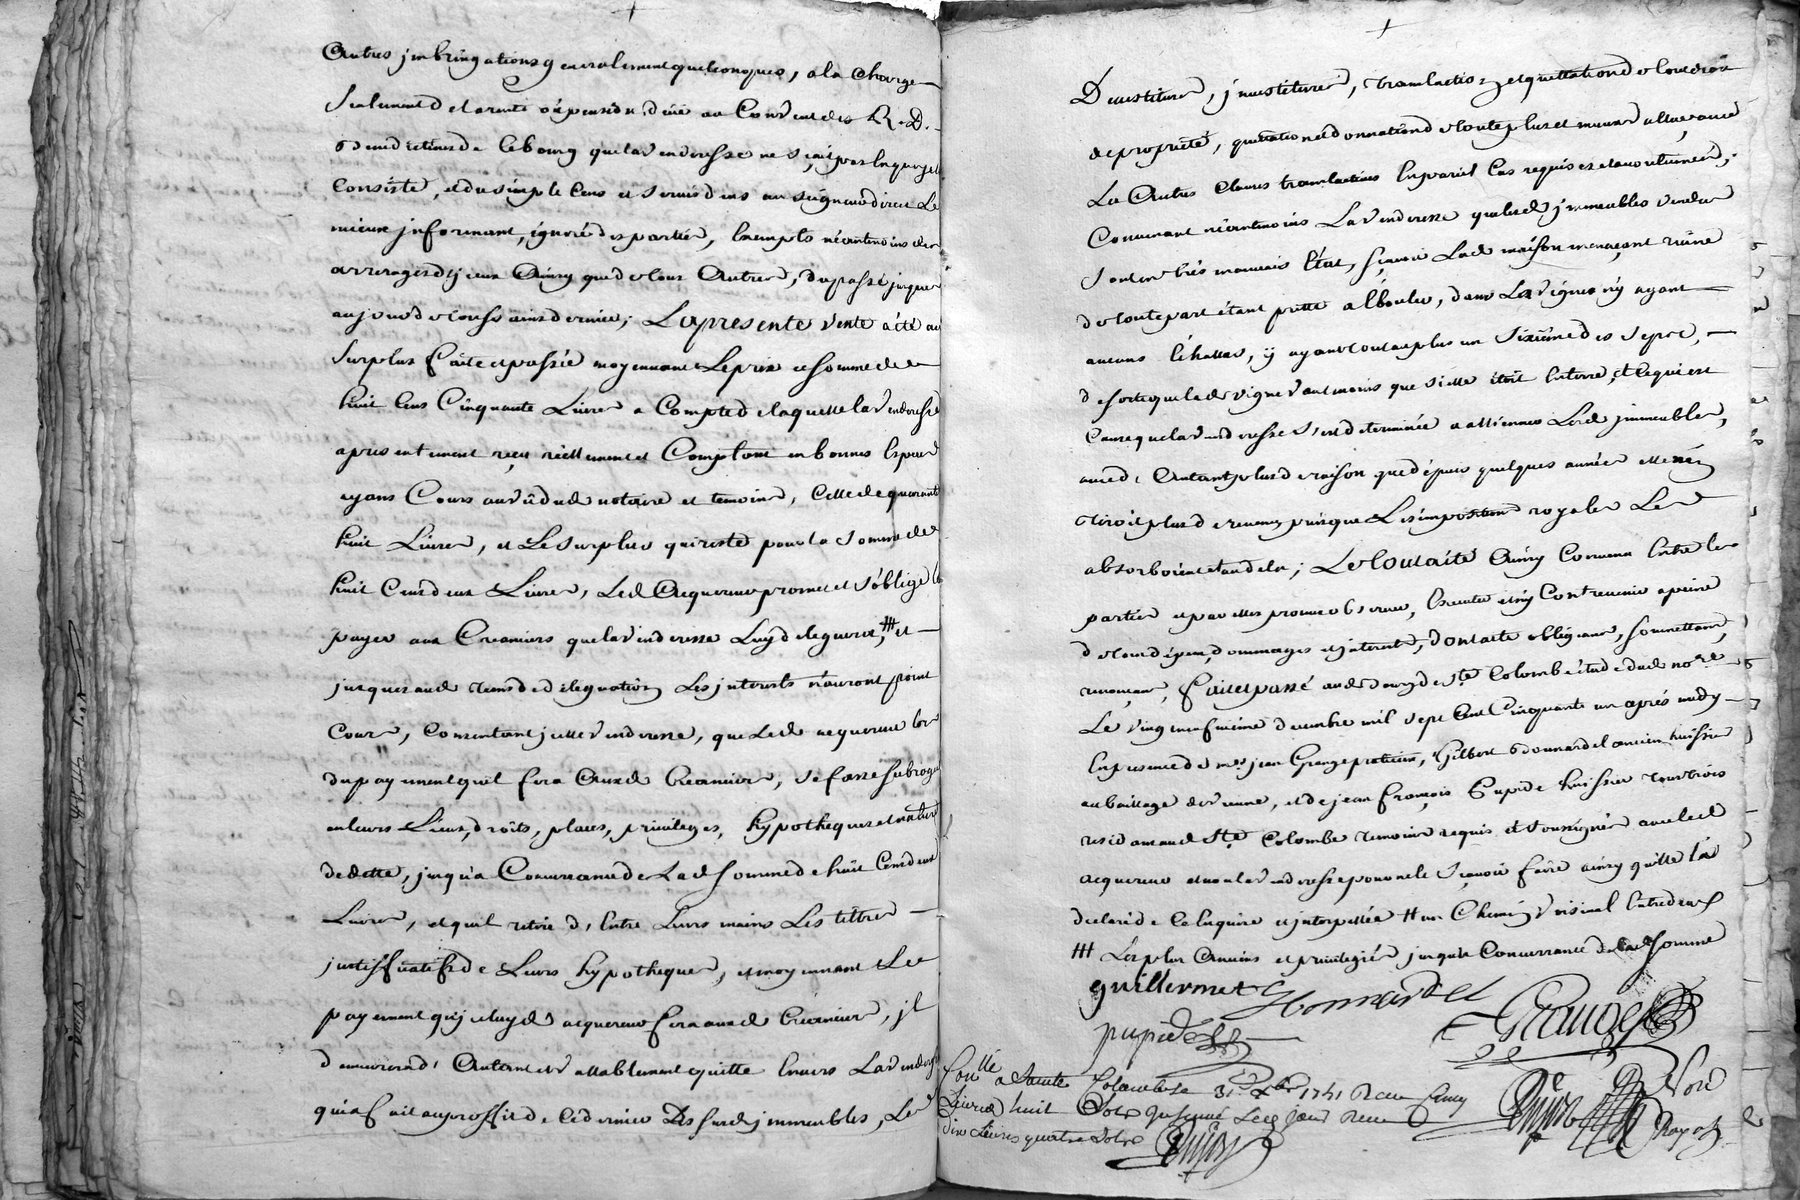 Autres jmbringations generalement quelconques, a la Charge
seulement de la rente ou pension düe au Couvent des R. D.
benedictines de le bourg que la venderesse ne sçait pas en quoy elle
Consiste, et du simple Cens et servis deus au seigneur direct Le
mieux jnformant, ignoré des parties, Exempts néantmoins des
arrerages d'jceux Ainsy que de tous Autres, du passé jusques
aujourd'
La presente vente a été au
surplus faitte et passée moyennant Le prix et somme de
huit Cens Cinquante Livres a Compte de laquelle la venderesse
a presentement reçu réellement et Comptant en bonnes Especes
ayans Cours au vû dud notaire et temoins, Celle de quarante
huit Livres, et Le surplus qui reste pour la somme de
huit Cens deux Livres, Led Acquereur promet et s'oblige
payer aux Creanciers que la venderesse Luy deleguera, ⧻ et
jusques aud tems de delegation Les jnterests n'auront point
Cours, Consentant jcelle venderesse, que Led acquereur lors
du payement qu'il fera Auxd Creanciers, se fasse subroger
en leurs Lieux, droits, places, privileges, hypotheques et nature
de dette, jusqu'a Concurrance de Lad somme de huit Cens deux
Livres, et qu'il retire d'Entre Leurs mains Les tittres
justifficatifs de Leurs hypotheques, et moyennant Le
payement qu'jceluyd acquereur fera auxd Creanciers, jl
demeurera d'Autant et vallablement quitte Envers La venderesse
qui a fait au proffit de Ce dernier Des susd jmmeubles, Les
Devestiture, jnvestiture, translation et quittation de tous droits
de proprieté, quittation et donnation de toute plus et moins value avec
Les Autres Clauses translatives En pareil Cas requises et accoutumées,
Convenant néantmoins La venderesse que lesd jmmeubles vendus
sont en trés mauvais Etat, sçavoir Lad maison menaçant ruine
de toute part étant prette a s'Ebouler, dans La vigne n'y ayant
aucuns Echallas, y ayant tout au plus un sixiéme des seps,
de sorte que lad vigne vaut moins que si elle étoit En terre, et Ce qui est
Cause que la venderesse s'est determinée a alliener Lesd jmmeubles,
avec d'Autant plus de raison que dépuis quelques années elle n'en
tiroit plus de revenu puisque Les impositions royales Les
absorboient et audela; Le tout a été Ainsy Convenu Entre les
parties et par elles promis observer, Executer et n'y Contrevenir a peine
de tous dépens, dommages et jnterests, dont acte obligeant, soumettant,
renonçant, fait et passé aud bourg de Ste Colombe étude dud nore
Le vingt neufvieme decembre mil sept Cent Cinquante un aprés midy
En presence de me jean Grange praticien, Gilbert bonnardel ancien huissier
au baillage de vienne, et de jean françois Pupide huissier tous trois
residans aud Ste Colombe temoins requis et soussignés avec led
acquereur et non la venderesse pour ne le sçavoir faire ainsy qu'elle l'a
declaré de Ce Enquise et jnterpellée # un Chemin visinal Entredeux
⧻ Les plus Anciens et privilegiés jusqu'a Concurrance de lad somme
guillermet Bonnardel Grange
pupide
Conllé a Sainte Colombe 31e Xbre 1751 Reçu
Livres huit Sols
dix Livres quatre Sols